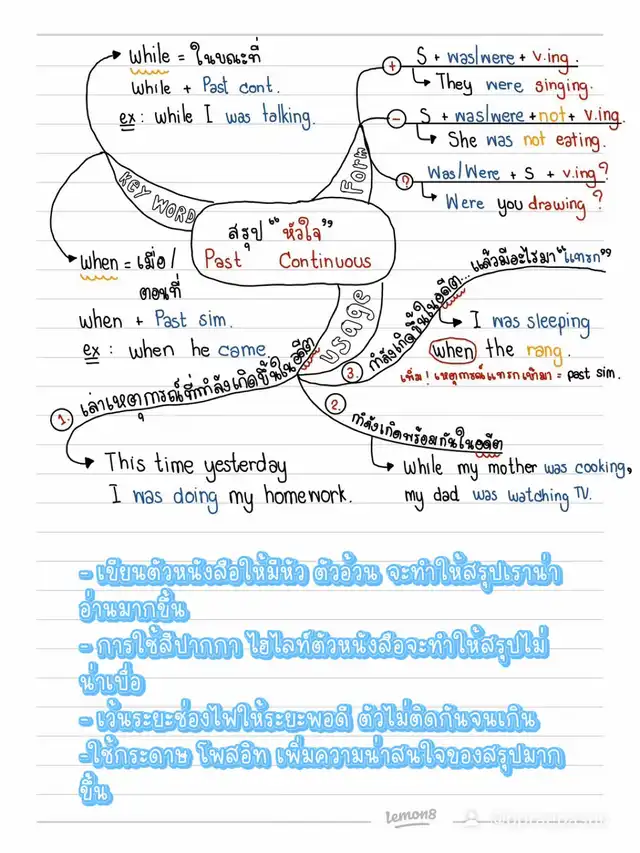 while = ในขณะที่
while + Past cont.
ex : while I was talking.
KEY WORD
when = เมื่อ /
ตอนที่
when + Past sim.
ex : when he came
Form
+ S + was/were + v.ing.
They were singing.
- S + was/were + not + v.ing.
She was not eating.
? Was/Were + S + v.ing?
Were you drawing ?
สรุป "หัวใจ"
Past Continuous
usage
1. เล่าเหตุการณ์ที่กำลังเกิดขึ้นในอดีต
This time yesterday
I was doing my homework.
2. กำลังเกิดพร้อมกันในอดีต
While my mother was cooking,
my dad was watching TV.
3. กำลังเกิดขึ้นในอดีต... แล้วมีอะไรมา "แทรก"
I was sleeping
when the rang.
เพิ่ม! เหตุการณ์แทรกเข้ามา = past sim.
- เขียนตัวหนังสือให้มีหัว ตัวอ้วน จะทำให้สรุปเราน่า
อ่านมากขึ้น
- การใช้สีปากกา ไฮไลท์ตัวหนังสือจะทำให้สรุปไม่
น่าเบื่อ
- เว้นระยะช่องไฟให้ระยะพอดี ตัวไม่ติดกันจนเกิน
-ใช้กระดาษ โพสอิท เพิ่มความน่าสนใจของสรุปมาก
ขึ้น
Lemon8